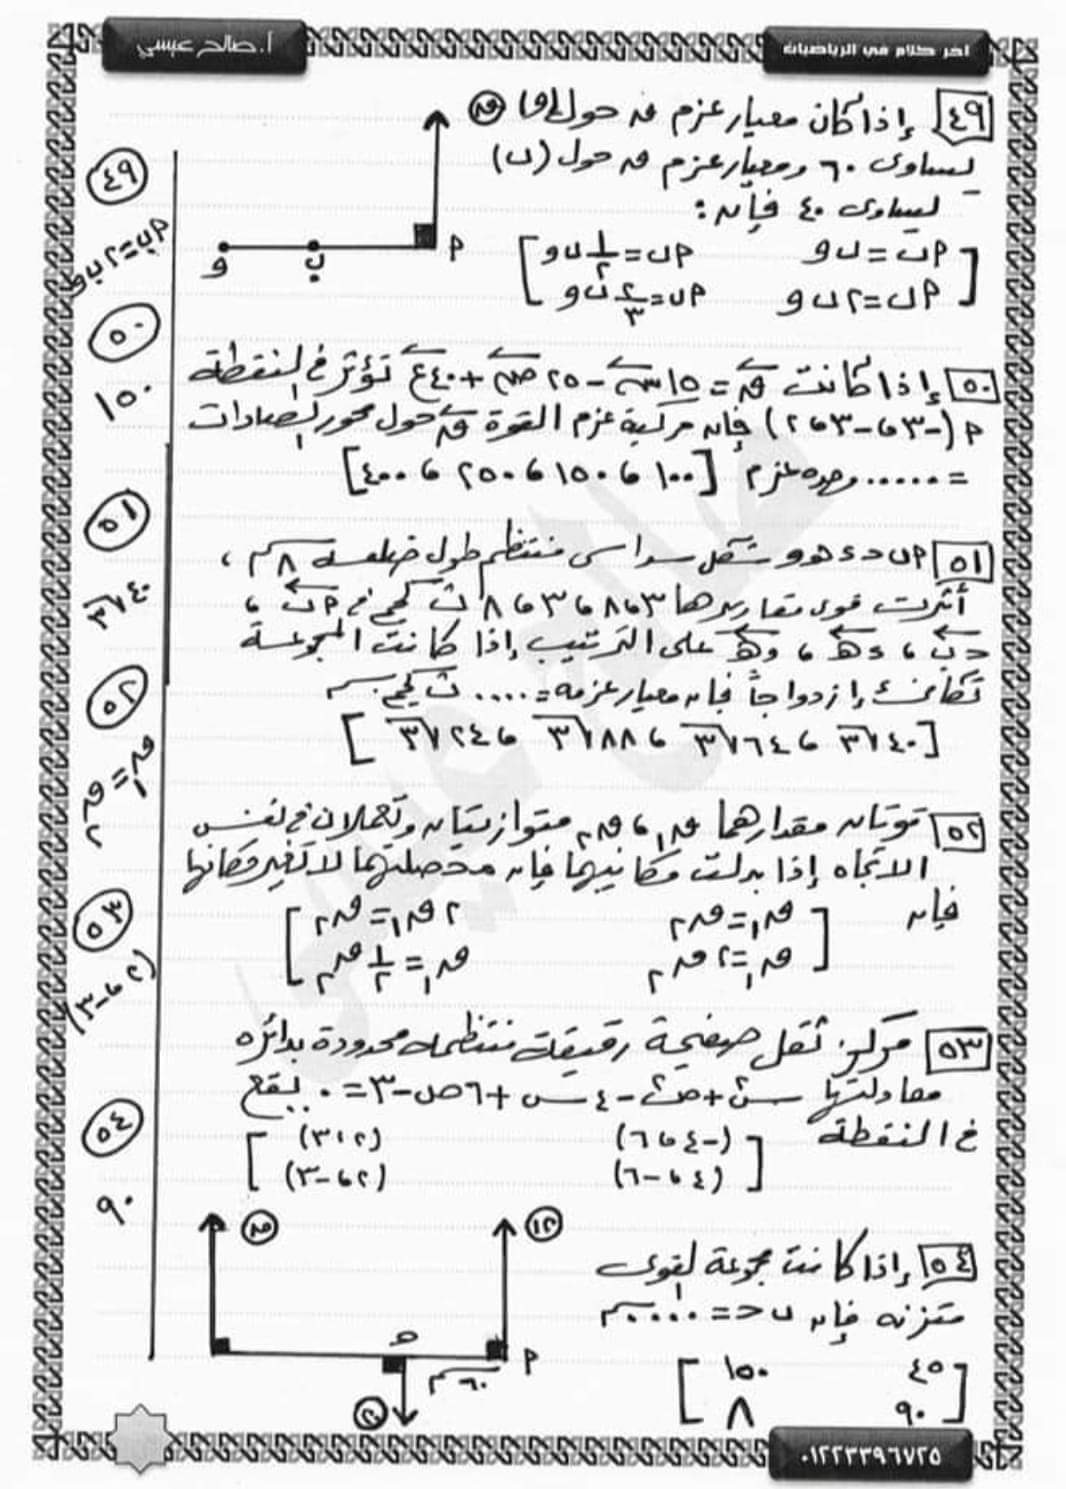 أ. صالح عيسى
اخر كلام في الرياضيات
٤٩ إذا كان معيار عزم ق حول (و)
يساوى ٦٠ ومعيار عزم ق حول (ب)
يساوى ٤٠ فإن :
[ أب = ب و    أب = ١/٢ ب و
أب = ٢ ب و    أب = ٢/٣ ب و ]
ق
أ ب و
٥٠ إذا كانت ق = ١٥ س - ٢٥ ص + ٤٠ ع تؤثر في النقطة
أ (-٣، -٣، ٢) فإن مركبة عزم القوة ق حول محور الصادات
= ...... وحدة عزم [١٠٠، ١٥٠، ٢٥٠، ٤٠٠]
٥١ أ ب ح د ه و شكل سداسى منتظم طول ضلعه ٨ سم ،
أثرت قوى مقاديرها ٣، ٨، ٣، ٨ ث كجم فى أ ب ،
ح ب ، د ه ، و ه على الترتيب إذا كانت المجموعة
تكافئ ازدواجاً فإن معيار عزمه = .... ث كجم . سم
[ ٤٠√٣ ، ٦٤√٣ ، ٨٨√٣ ، ٢٤√٣ ]
٥٢ قوتان مقدارهما ق١ ، ق٢ متوازيتان وتعملان فى نفس
الاتجاه إذا بدلت مكانيهما فإن محصلتهما لا تغير مكانها
فإن
[ ق١ = ق٢    ٢ ق١ = ق٢
ق١ = ٢ ق٢    ق١ = ١/٢ ق٢ ]
٥٣ مركز ثقل صفيحة رقيقة منتظمة محدودة بدائرة
معادلتها س٢ + ص٢ - ٤ س + ٦ ص - ٣ = ٠ يقع
فى النقطة
[ (-٤، ٦)    (٢، ٣)
(٤، -٦)    (٢، -٣) ]
٥٤ إذا كانت مجموعة القوى
متزنه فإن ب ح = ..... سم
[ ٤٥    ١٥٠
٩٠    ٨ ]
١٢
أ
٦٠ سم
٤٩
أب = ٢ ب و
٥٠
١٥٠
٥١
٤٠√٣
٥٢
ق١ = ق٢
٥٣
(٢، -٣)
٥٤
٩٠
٠١٢٢٣٣٩٦٧٢٥